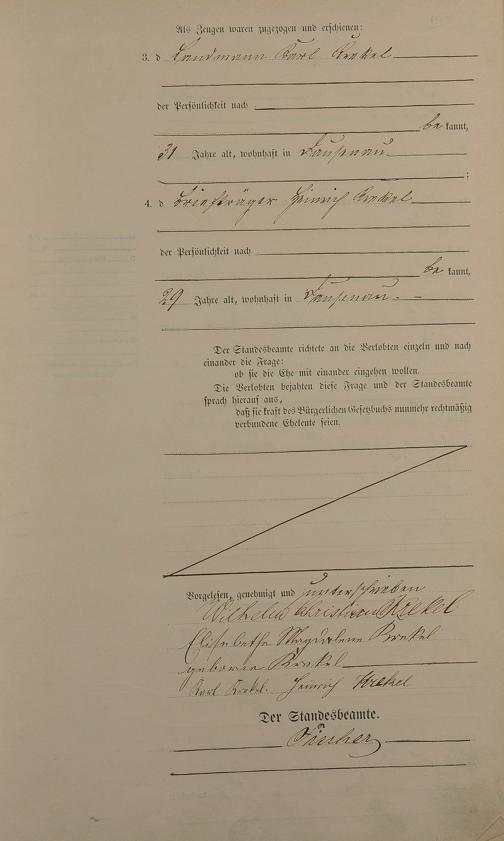 Als Zeugen waren zugezogen und erschienen:
3. d Landmann Karl Krekel
der Persönlichkeit nach
be kannt,
31 Jahre alt, wohnhaft in Dausenau
;
4. d Briefträger Heinrich Krekel
der Persönlichkeit nach
be kannt,
29 Jahre alt, wohnhaft in Dausenau.
Der Standesbeamte richtete an die Verlobten einzeln und nach
einander die Frage:
ob sie die Ehe mit einander eingehen wollen.
Die Verlobten bejahten diese Frage und der Standesbeamte
sprach hierauf aus,
daß sie kraft des Bürgerlichen Gesetzbuchs nunmehr rechtmäßig
verbundene Eheleute seien.
Vorgelesen, genehmigt und unterschrieben
Wilhelm Christian Krekel
Elisabethe Magdalene Krekel
geborne Krekel
Karl Krekel. Heinrich Krekel
Der Standesbeamte.